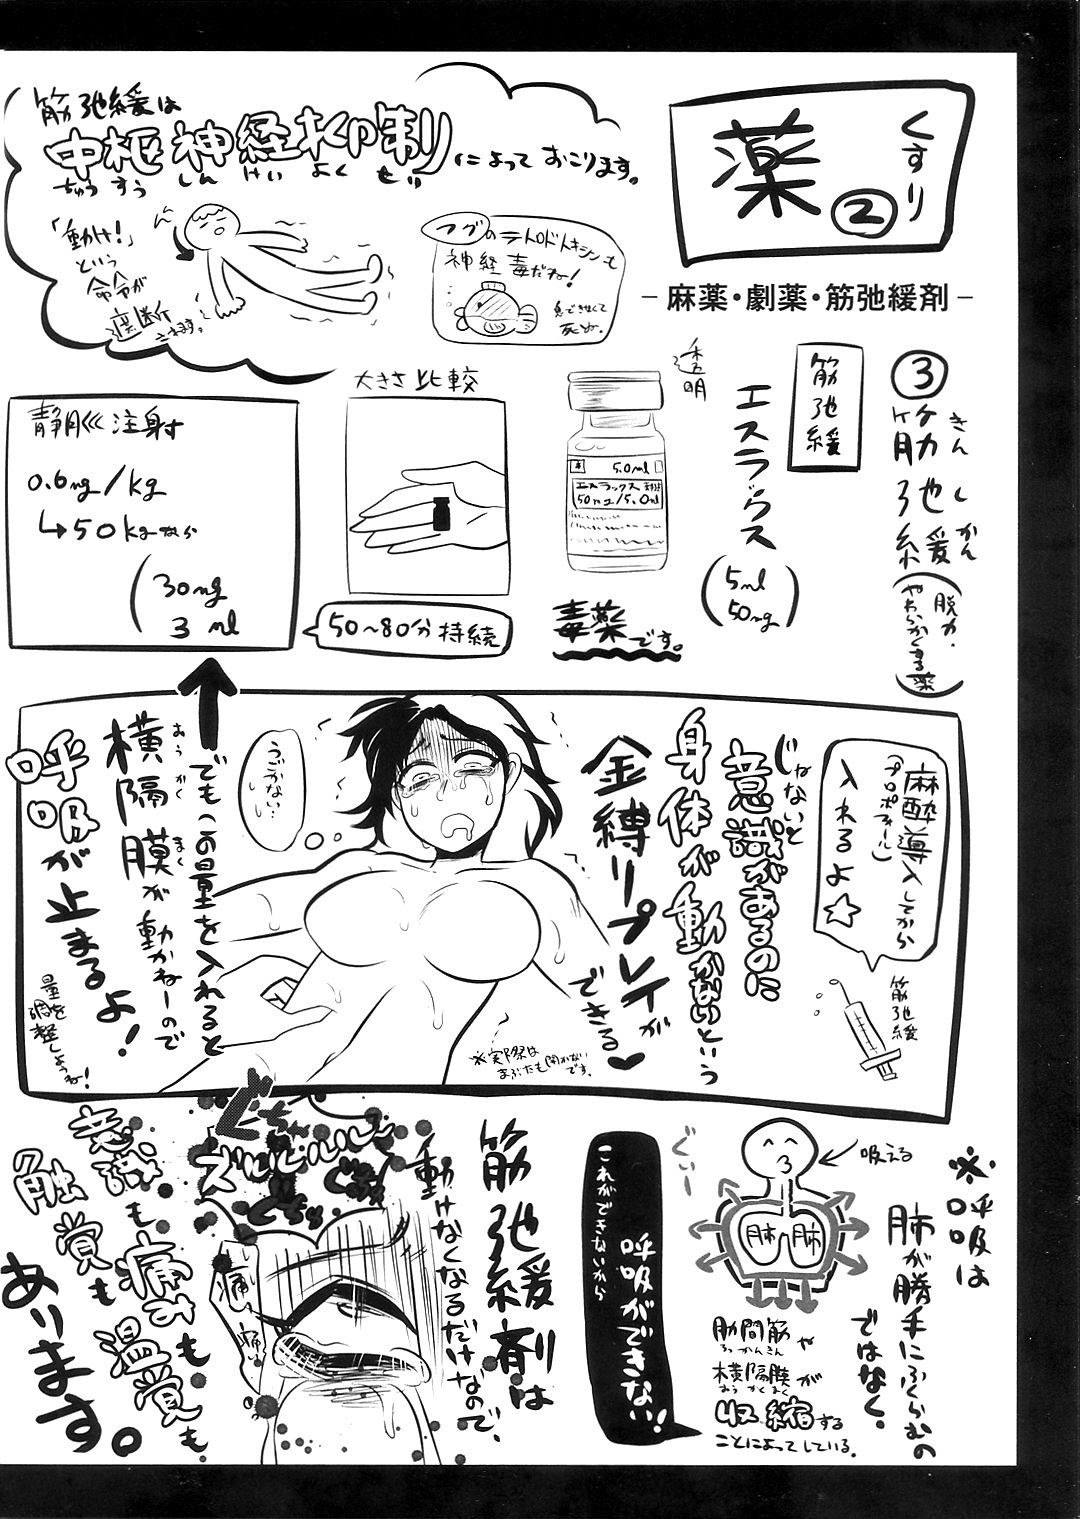 薬
くすり
②
－麻薬・劇薬・筋弛緩剤－
筋弛緩は
中枢神経抑制
ちゅうすうしんけいよくせい
によっておこります。
「動け!」
という
命令が
遮断
されます。
フグのテトロドトキシンも
神経毒だね!
息できなくて
死ぬ。
③
筋弛緩
きんしかん
(脱力・
やわらかくする薬)
筋弛緩
エスラックス
透明
(5ml
50mg)
5.0ml
エスラックス
50mg/5.0ml
毒薬です。
大きさ比較
50〜80分持続
静脈注射
0.6mg/kg
↳50kgなら
(30mg
3ml
麻酔導入してから
(プロポフォール)
入れるよ☆
筋弛緩
じゃないと
意識があるのに
身体が動かないという
金縛りプレイが
できる♥
うごかない…
※実際は
まぶたも開かない
です。
でもこの量を入れると
横隔膜が動かねーので
おうかくまく
呼吸が止まるよ!
量を
調整しようね!
※呼吸は
肺が勝手にふくらむの
ではなく。
吸える
肺
肺
ぐいー
肋間筋や
ろっかんきん
横隔膜が
おうかくまく
収縮する
ことによってしている。
これができないから
呼吸ができない!
筋弛緩剤は
動けなくなるだけなので、
ぐちゃ
ズルルルル
ぐちゃ
ぐちゅ
痛い
痛い
意識も痛みも
触覚も温覚も
あります。